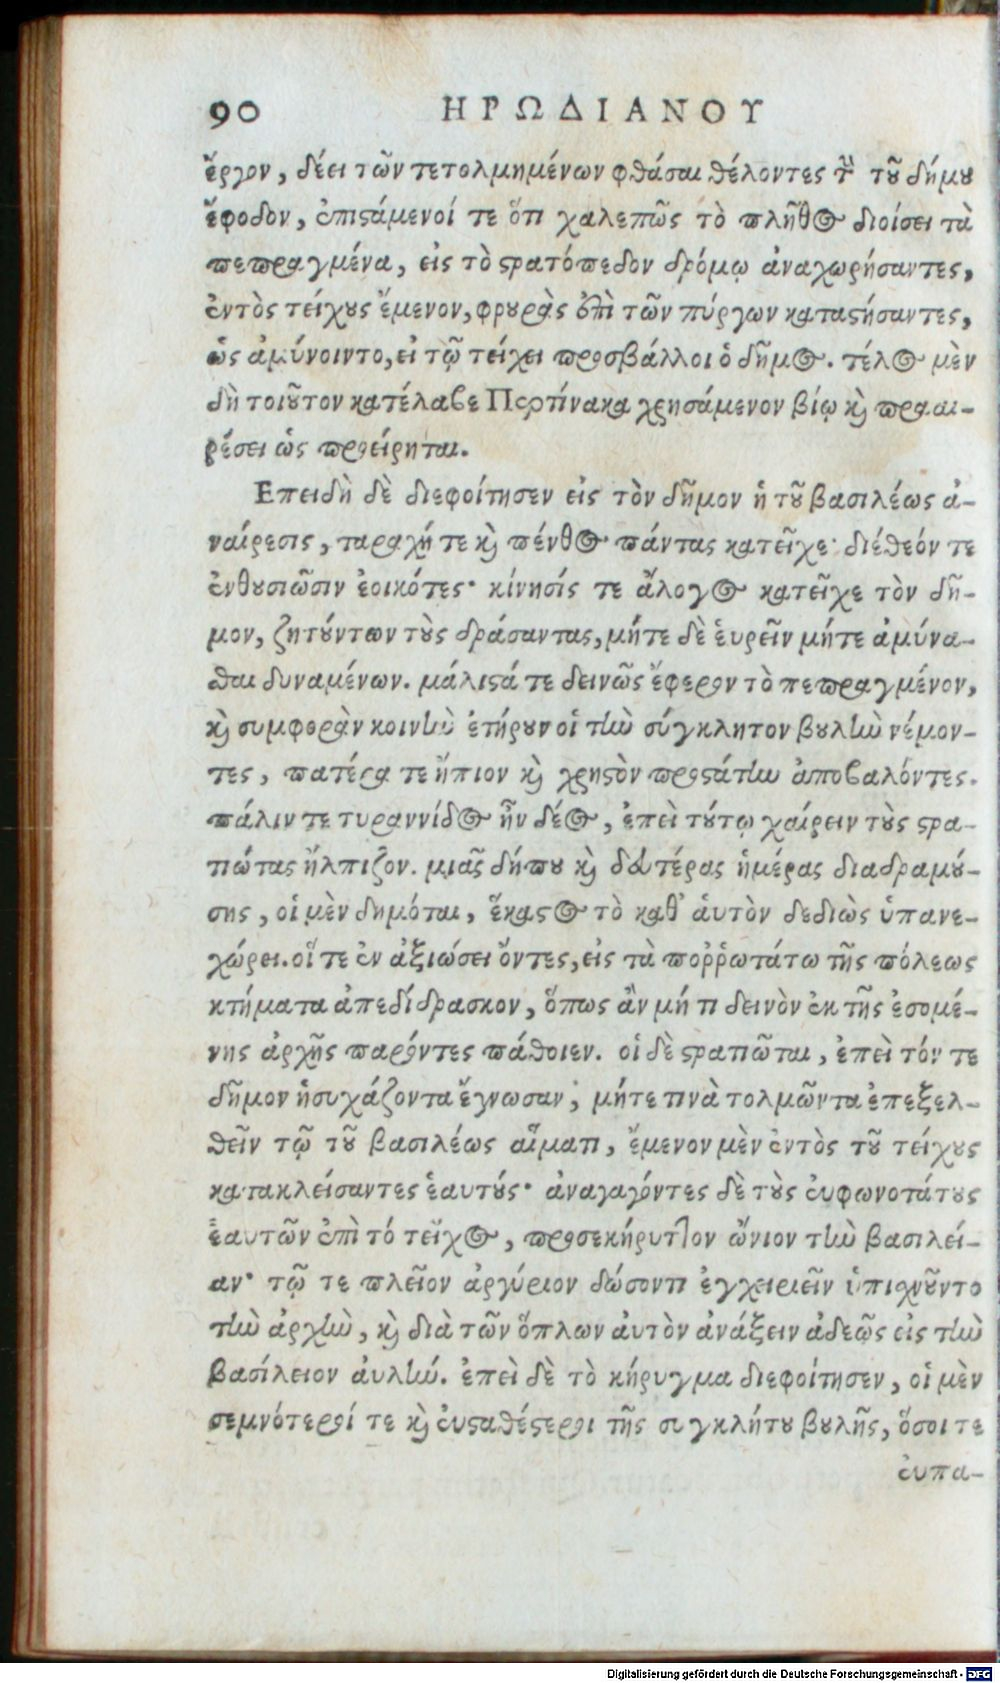 90 ΗΡΩΔΙΑΝΟΥ
ἔργον, δέει τῶν τετολμημένων φθάσαι θέλοντες τὴν τοῦ δήμου
ἔφοδον, ἐπιστάμενοί τε ὅτι χαλεπῶς τὸ πλῆθος διοίσει τὰ
πεπραγμένα, εἰς τὸ στρατόπεδον δρόμῳ ἀναχωρήσαντες,
ἐντὸς τείχους ἔμενον, φρουρὰς ἐπὶ τῶν πύργων καταστήσαντες,
ὡς ἀμύνοιντο, εἰ τῷ τείχει προσβάλλοι ὁ δῆμος. τέλος μὲν
δὴ τοιοῦτον κατέλαβε Περτίνακα χρησάμενον βίῳ καὶ προαι-
ρέσει ὡς προείρηται.
Επειδὴ δὲ διεφοίτησεν εἰς τὸν δῆμον ἡ τοῦ βασιλέως ἀ-
ναίρεσις, ταραχή τε καὶ πένθος πάντας κατεῖχε· διέθεόν τε
ἐνθουσιῶσιν ἐοικότες· κίνησίς τε ἄλογος κατεῖχε τὸν δῆ-
μον, ζητούντων τοὺς δράσαντας, μήτε δὲ ἑυρεῖν μήτε ἀμύνα-
σθαι δυναμένων. μάλιστά τε δεινῶς ἔφερον τὸ πεπραγμένον,
καὶ συμφορὰν κοινὴν ἐτήρουν οἱ τὴν σύγκλητον βουλὴν νέμον-
τες, πατέρα τε ἤπιον καὶ χρηστὸν προστάτην ἀποβαλόντες.
πάλιν τε τυραννίδος ἦν δέος, ἐπεὶ τούτῳ χαίρειν τοὺς στρα-
τιώτας ἤλπιζον. μιᾶς δήπου καὶ δευτέρας ἡμέρας διαδραμού-
σης, οἱ μὲν δημόται, ἕκαστος τὸ καθ' ἁυτὸν δεδιὼς ὑπανε-
χώρει. οἵ τε ἐν ἀξιώσει ὄντες, εἰς τὰ πορῤῥωτάτω τῆς πόλεως
κτήματα ἀπεδίδρασκον, ὅπως ἂν μή τι δεινὸν ἐκ τῆς ἐσομέ-
νης ἀρχῆς παρόντες πάθοιεν. οἱ δὲ στρατιῶται, ἐπεὶ τόν τε
δῆμον ἡσυχάζοντα ἔγνωσαν, μήτε τινὰ τολμῶντα ἐπεξελ-
θεῖν τῷ τοῦ βασιλέως αἵματι, ἔμενον μὲν ἐντὸς τοῦ τείχους
κατακλείσαντες ἑαυτούς· ἀναγαγόντες δὲ τοὺς ἐυφωνοτάτους
ἑαυτῶν ἐπὶ τό τεῖχος, προσεκήρυττον ὤνιον τὴν βασιλεί-
αν· τῷ τε πλεῖον ἀργύριον δώσοντι ἐγχειριεῖν ὑπισχνοῦντο
τὴν ἀρχὴν, καὶ διὰ τῶν ὅπλων ἀυτὸν ἀνάξειν ἀδεῶς εἰς τὴν
βασίλειον ἀυλήν. ἐπεὶ δὲ τὸ κήρυγμα διεφοίτησεν, οἱ μὲν
σεμνότεροί τε καὶ ἐυσταθέστεροι τῆς συγκλήτου βουλῆς, ὅσοι τε
ἐυπα-
Digitalisierung gefördert durch die Deutsche Forschungsgemeinschaft - DFG